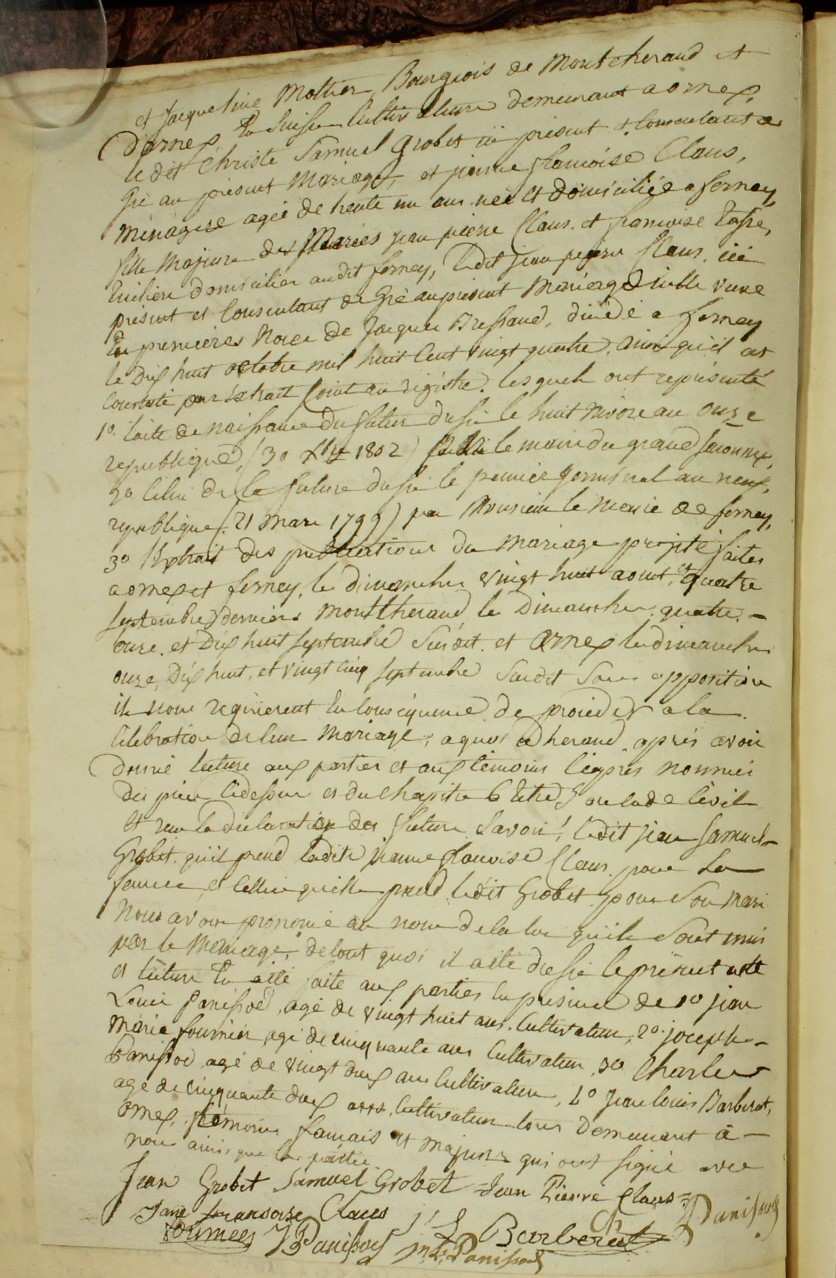 et jacqueline Mottier Bourgeois de Montcherand et
D'arnex en Suisse Cultivateur demeurant a ornex,
le dit Christe Samuel Grobet ici présent et Consentant de
Gré au présent Mariage, et jeanne françoise Claus,
Ménagere agée de trente un ans née et domiciliée a ferney
fille Majeure des Mariés jean pierre Claus et francoise
domicilier audit ferney, Ledit jean pierre Claus, ici
présent et Consentant de Gré au présent Mariage veuve
En premieres Noces de Jacques Bressaud, dcédé a ferney
le Dix huit octobre mil huit Cent vingt quatre, ainsi qu'il est
Constaté par Extrait joint au régistre. lesquels ont représenté
1º. l'acte de naissance du futur dressé le huit nivose an onze
republique, (30 Xbre 1802) le maire du grand
2º Celui de la future dressé le premier germinal an neuf,
republique (21 Mars 1799) par Monsieur le Maire de ferney,
3º Extrait des publications du Mariage projeté faites
a ornex et ferney, le dimanches vingt huit aout, et quatre
septembre derniers Montcherand le Dimanches quatre,
onze, et Dix huit septembre Susdit. et Arnex les dimanches
onze, Dix huit, et vingt cinq septembre Susdit Sans opposition
ils nous requierent En Conséquence de proceder a la
Célébration de leur Mariage; a quoi adherand après avoir
Donné lecture aux parties et aux témoins ci après nommés
des pieces Cidessus et du Chapitre 6 du Code Civil
Et reçu la Déclaration des futurs Savoir, Ledit jean Samuel
Grobet qu'il prend Ladite jeanne françoise Claus pour Sa
femme, et Celleci qu'elle prend Ledit Grobet pour Son Mari
Nous avons prononcé au nom de la loi qu'ils Sont unis
par le Mariage, de tout quoi il a été dressé le présent acte
et lecture En a été faite aux parties En présence de 1º jean
Louis Panissod, agé de vingt huit ans, Cultivateur, 2º joceph
Marie fournier agé de cinquante ans Cultivateur, 3º Charles
Panissod agé de vingt deux ans Cultivateur, 4º jean louis Barberat,
agé de cinquante deux ans, Cultivateur tous Demeurant à
ornex, témoins francais et majeurs qui ont signé avec
nous ainsi que les parties
Jean Grobet Samuel Grobet Jean Pierre Claus
Jane francoise Claus
Panissod Barberat Ch Panissod